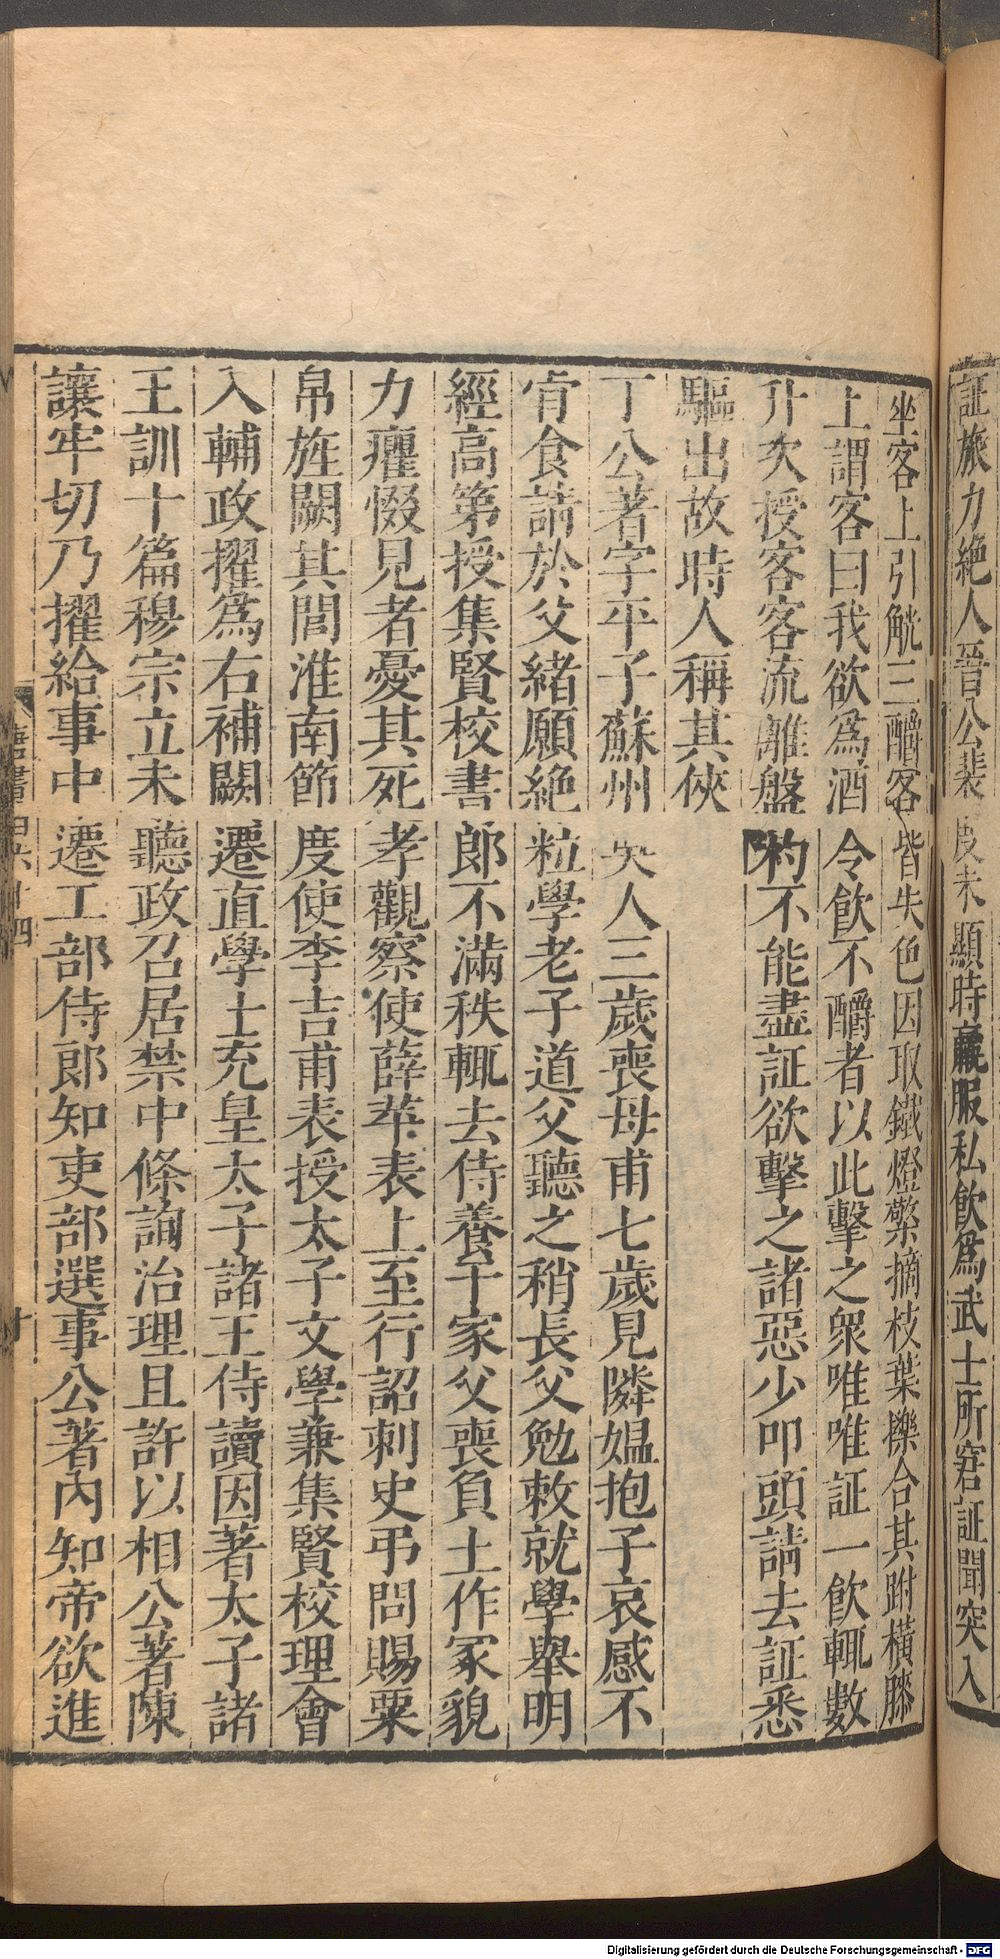 証旅力絶人晉公裴度未顯時羸服私飲爲武士所窘証聞突入
坐客上引觥三釂客皆失色因取鐵燈檠摘枝葉擽合其跗橫膝
上謂客曰我欲爲酒令飲不釂者以此擊之衆唯唯証一飲輒數
升次授客客流離盤杓不能盡証欲擊之諸惡少叩頭請去証悉
驅出故時人稱其俠
丁公著字平子蘇州吳人三歲喪母甫七歲見隣媼抱子哀感不
肯食請於父緒願絶粒學老子道父聽之稍長父勉敕就學舉明
經高第授集賢校書郎不滿秩輒去侍養于家父喪負土作冢貌
力癯惙見者憂其死孝觀察使薛苹表上至行詔刺史弔問賜粟
帛旌闕其閭淮南節度使李吉甫表授太子文學兼集賢校理會
入輔政擢爲右補闕遷直學士充皇太子諸王侍讀因著太子諸
王訓十篇穆宗立未聽政召居禁中條詢治理且許以相公著陳
讓牢切乃擢給事中遷工部侍郎知吏部選事公著內知帝欲進
十
Digitalisierung gefördert durch die Deutsche Forschungsgemeinschaft - DFG